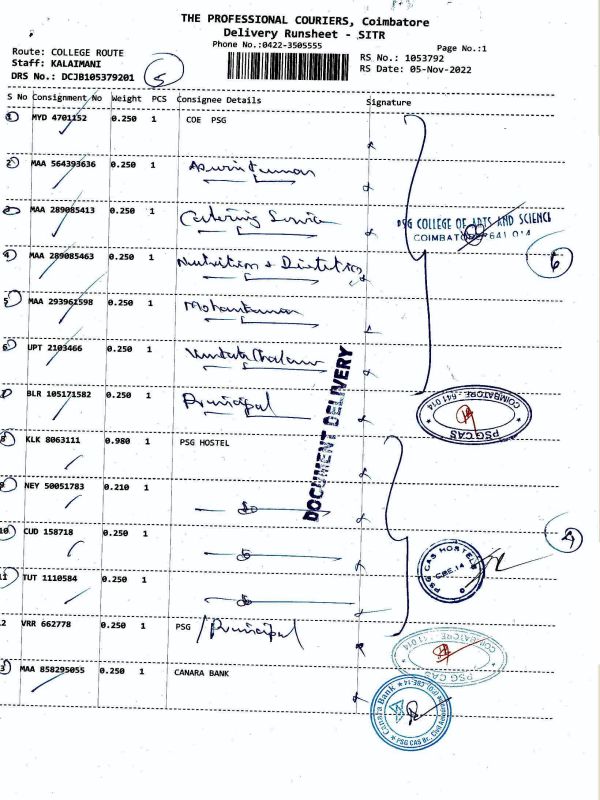 THE PROFESSIONAL COURIERS, Coimbatore
Delivery Runsheet - SITR
Phone No.:0422-3505555
Page No.:1
Route: COLLEGE ROUTE
Staff: KALAIMANI
DRS No.: DCJB105379201
5
RS No.: 1053792
RS Date: 05-Nov-2022
S No Consignment No Weight PCS Consignee Details Signature
1 MYD 4701152 0.250 1 COE PSG
2 MAA 564393636 0.250 1
3 MAA 289085413 0.250 1 Catering Science
PSG COLLEGE OF ARTS AND SCIENCE
COIMBATORE - 641 014
4 MAA 289085463 0.250 1 Nutrition & Dietetics
6
5 MAA 293961598 0.250 1 Mohankumar
6 UPT 2103466 0.250 1 Venkatachalam
DOCUMENT DELIVERY
7 BLR 105171582 0.250 1 Principal
PSG CAS
COIMBATORE - 641 014
8 KLK 8063111 0.980 1 PSG HOSTEL
9 NEY 50051783 0.210 1
10 CUD 158718 0.250 1
4
PSG CAS HOSTELS
CBE.14
11 TUT 1110584 0.250 1
2 VRR 662778 0.250 1 PSG / Principal
PSG CAS
COIMBATORE - 641 014
3 MAA 858295055 0.250 1 CANARA BANK
Canara Bank
PSG CAS Br.